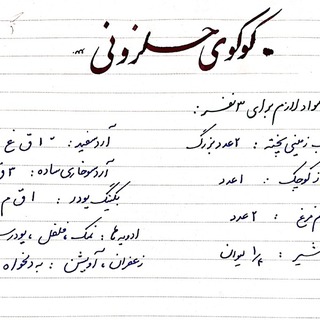 کوکوی حلزونی
مواد لازم برای ۳ نفر:
زمینی پخته: ۲ عدد بزرگ
آرد سفید: ۱ ق غ
کوچک: ۱ عدد
آرد سوخاری ساده: ۳ ق
مرغ: ۲ عدد
بکینگ پودر: ۱ ق م
شیر: ۱/۴ لیوان
ادویه ها: نمک، فلفل، پودر
زعفران، آویشن: به دلخواه